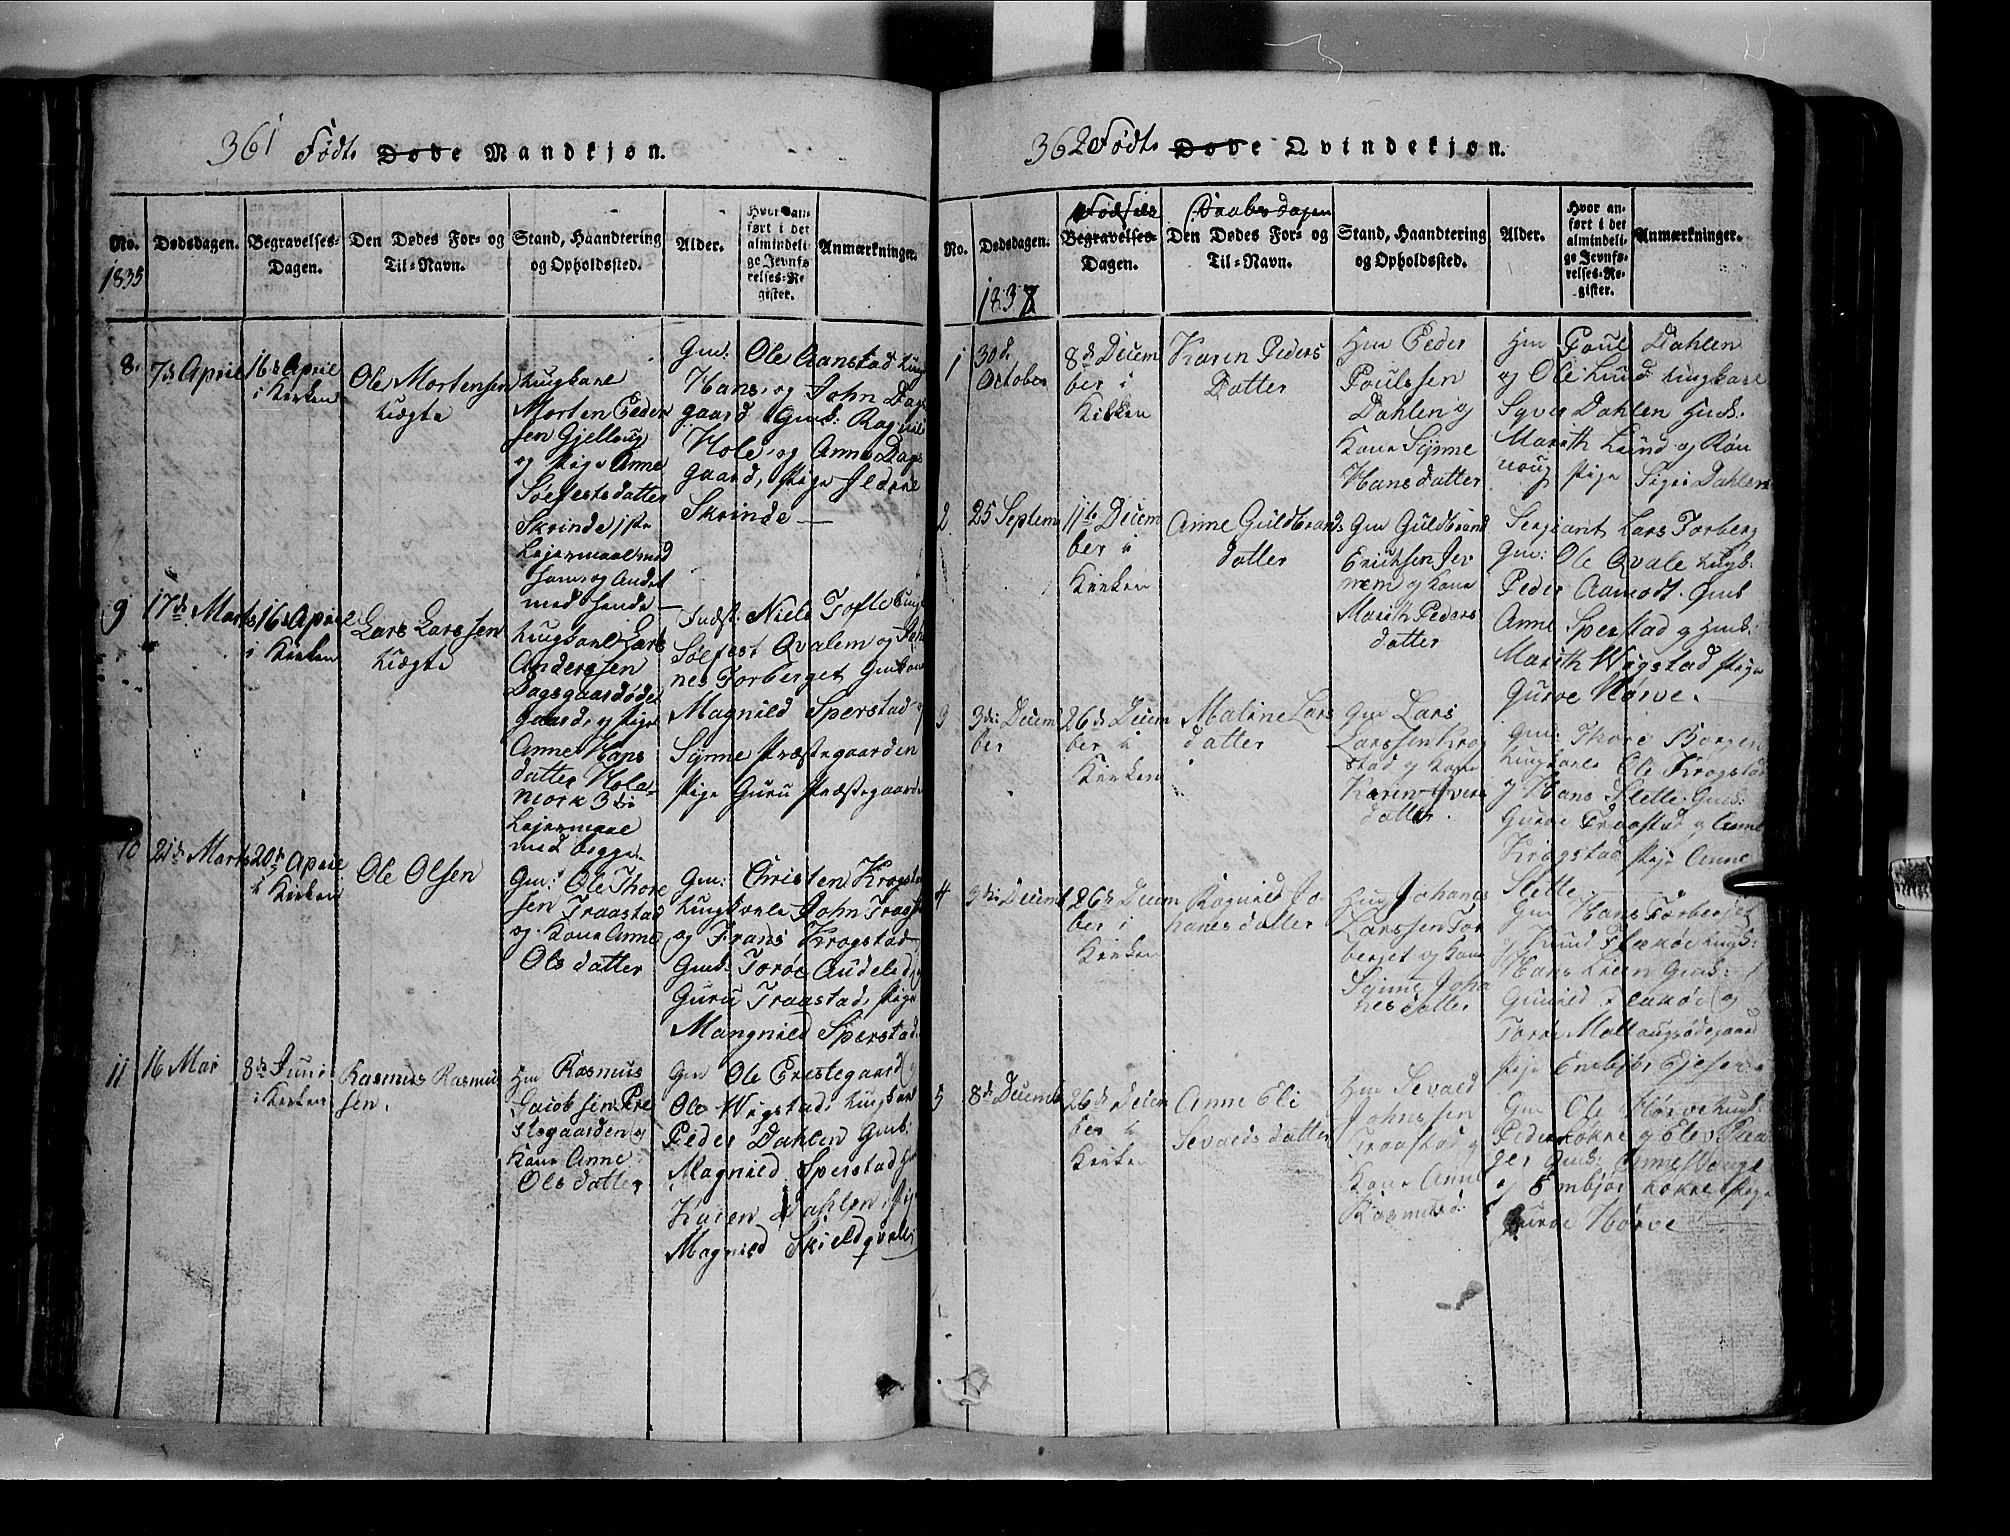 361 Födte Døde Mandkjøn.
No. Dødsdagen. Begravelses-Dagen. Den Dødes For- og Til-Navn. Stand, Haandtering og Opholdssted. Alder. Hvor anført i det almindelige Jevnførelses-Register. Anmærkninger.
1835
8. 7de April 16de April i Kirken
Ole Mortensen
Uægte
Ungkarl
Morten Peder
sen Gjellrug
og Pige Anne
Solfestsdatter
Skrinde, 1ste
Lejermaal med
ham og Andet
med hende
Gmd: Ole Aanstad Ung
Hans, og John Dags
gaard Gmk: Ragnild
Hole, og Anne Dags
gaard, Pige
Skrinde
9 17de Marts 16de April i Kirken
Lars Larssen
Uægte
Ungkarl Lars
Anderssen
Dagsgaardødei
gaard, og Pige
Anne Hans
datter Hole
mork 3die
Lejermaal
med begge
Indst: Niels Tofte Ungk
Solfest Qvalem og Joha
nes Forberget Gmkone
Magnild Sperstad og
Synne Præstegaarden
Pige Guru Præstegaarden
10 21de Marts 20de April i Kirken
Ole Olsen
Gm: Ole Thore
sen Traastad
og Kone Anne
Olsdatter
Gm: Christen Krogstad
Ungkarle John Traastad
og Frans Krogstad
Gmk: Torøe Audelsd og
Guru Traastad, Pige
Mangnild Sperstad
11 16 Mai 8de Juni i Kirken
Rasmus Rasmus
sen.
Hm Rasmus
Jacobsen Pre
stegaarden og
Kone Anne
Olsdatter
Gm Ole Prestegaard og
Ole Wigstad, Ungkarl
Peder Dahlen Gmk:
Magnild Sperstad
Karen Dahlen, Pige
Magnild Skieldqvale
362 Födte Døde Qvindekjøn.
No. Dødsdagen. Fødsels Begravelses-Dagen. Daabsdagen Den Dødes For- og Til-Navn. Stand, Haandtering og Opholdssted. Alder. Hvor anført i det almindelige Jevnførelses-Register. Anmærkninger.
1837
1 30de October
8de Decem
ber i
Kirken
Karen Peders
Datter
Hm Peder
Poulssen
Dahlen og
Kone Synne
Hansdatter
Hm Poul Dahlen
og Ole Lund Ungkarl
Syver Dahlen Hmk.
Marith Lund og Røn
noug Pige Sigri Dahlen
2 25 Septem
11te Decem
ber i
Kirken
Anne Guldbrands
datter
Gm Guldbrand
Erichsen Jer
mem og Kone
Marith Peders
datter
Sergiant Lars Forberg
Gm: Ole Qvale Ungk:
Peder Aamodt. Gmk
Anne Sperstad og Hmk:
Marith Wigstad Pige
Gurve Hørve.
3 3die Decem
ber
26de Decem
ber i
Kirken
Maline Lars
datter
Gm Lars
Larssen Krog
stad og Kone
Karen Ivers
datter.
Gm: Thore Borgen
Ungkarle Ole Krogstad
og Hans Slette Gmk:
Guroe Traastad og Anne
Krogstad Pige Anne
Slette
4 9de Decemb 26de Decem
ber i
Kirken
Ragnild Jo
hanesdatter
Hm Johanes
Larssen For
berget og Kone
Synne Joha
nesdatter
Gm Hans Forberget
og Knud Flækøe Ungk:
Hans Lien Gmk:
Gunild Flækøe og
Torøe Mallaugsødegaard
Pige Embjør
5 8de Decemb 26de Decem
ber i
Kirken
Anne Eli
Sevaldsdatter
Hm Sevald
Johnssen
Traastad og
Kone Anne
Rasmusd:
Gm Ole Hørve Ungk:
Peder Kokne og Elev
Gmk: Anne
og Embjør Kokne Pige
Guroe Hørve